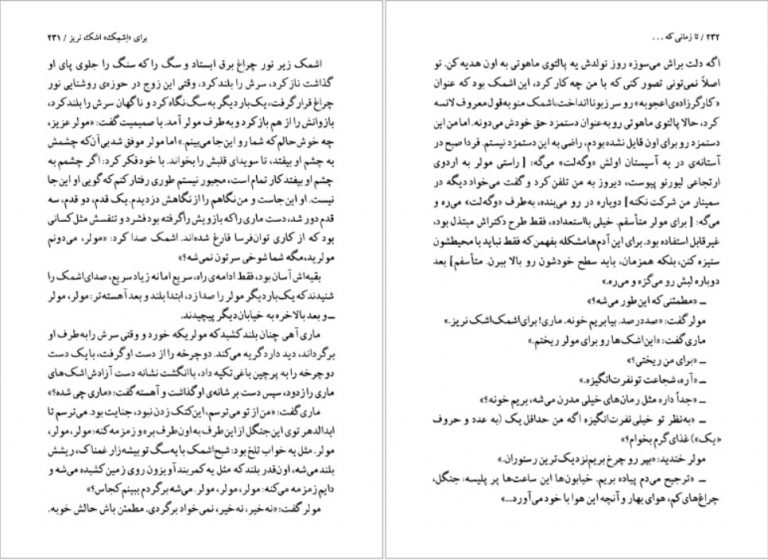 برای «اِشمک» اشک نریز / ۲۳۱
اشمک زیر نور چراغ برق ایستاد و سگ را که سنگ را جلوی پای او
گذاشت ناز کرد، سرش را بلند کرد، وقتی این زوج در حوزه‌ی روشنایی نور
چراغ قرار گرفت، یک بار دیگر به سگ نگاه کرد و ناگهان سرش را بلند کرد،
بازوانش را از هم باز کرد و به‌طرف مولر آمد. با صمیمیت گفت: «مولر عزیز،
چه خوش‌حالم که شما رو این جا می‌بینم.» اما مولر موفق شد بی آن‌که چشمش
به چشم او بیفتد، تا سویدای قلبش را بخواند. با خود فکر کرد: اگر چشمم به
چشم او بیفتد کار تمام است، مجبور نیستم طوری رفتار کنم که گویی او این جا
نیست. او این جاست و من نگاهم را از نگاهش دزدیدم. یک قدم، دو قدم، سه
قدم دور شد، دست ماری را که بازویش را گرفته بود فشرد و تنفسش مثل کسانی
بود که از کاری توان‌فرسا فارغ شده‌اند. اشمک صدا کرد: «مولر، می‌دونم
مولرید، مگه شما شوخی سرتون نمی‌شه؟»
بقیه‌اش آسان بود، فقط ادامه‌ی راه، سریع اما نه زیاد سریع، صدای اشمک را
شنیدند که یک بار دیگر مولر را صدا زد، ابتدا بلند و بعد آهسته‌تر: مولر، مولر
ــ و بعد بالاخره به خیابان دیگر پیچیدند.
ماری آهی چنان بلند کشید که مولر یکه خورد و وقتی سرش را به‌طرف او
برگرداند، دید دارد گریه می‌کند. دوچرخه را از دست او گرفت، با یک دست
دوچرخه را به پرچین باغی تکیه داد، با انگشت نشانه دست آزادش اشک‌های
ماری را زدود، سپس دست بر شانه‌ی او گذاشت و آهسته گفت: «ماری چی شده؟»
ماری گفت: «من از تو می‌ترسم، این کتک زدن نبود، جنایت بود. می‌ترسم تا
ابدالدهر توی این جنگل از این طرف به اون طرف بره و زمزمه کنه: مولر، مولر،
مولر. مثل یه خواب تلخ بود: شبح اشمک با یه سگ تو بیشه‌زار غمناک، ریشش
بلند می‌شه، اون‌قدر بلند که مثل یه کمربند آویزون روی زمین کشیده می‌شه و
دایم زمزمه می‌کنه: مولر، مولر، مولر. می‌شه برگردم ببینم کجاس؟»
مولر گفت: «نه خیر، نه خیر، نمی‌خواد برگردی. مطمئن باش حالش خوبه.
۲۳۲ / تا زمانی که ...
اگه دلت براش می‌سوزه روز تولدش یه پالتوی ماهوتی به اون هدیه کن. تو
اصلاً نمی‌تونی تصور کنی که با من چه کار کرد، این اشمک بود که عنوان
«کارگرزاده‌ی اعجوبه» رو سر زبونا انداخت، اشمک منو به قول معروف لانسه
کرد، حالا پالتوی ماهوتی رو به‌عنوان دستمزد حق خودش می‌دونه. اما من این
دستمزد رو برای اون قایل نشده بودم، راضی به این دستمزد نیستم. فردا صبح در
آستانه‌ی در به آسیستان اولش «وگه‌لت» می‌گه: [ راستی مولر به اردوی
ارتجاعی لیورنو پیوست، دیروز به من تلفن کرد و گفت می‌خواد دیگه در
سمینار من شرکت نکنه] دوباره در رو می‌بنده، به‌طرف «وگه‌لت» می‌ره و
می‌گه: [ برای مولر متأسفم. خیلی بااستعداده، فقط طرح دکتراش مبتذل بود،
غیر قابل استفاده بود. برای این آدم‌ها مشکله بفهمن که فقط نباید با محیطشون
ستیزه کنن، بلکه همزمان، باید سطح خودشون رو بالا ببرن. متأسفم] بعد
دوباره لبش رو می‌گزه و می‌ره.»
ــ «مطمئنی که این طور می‌شه؟»
مولر گفت: «صددرصد. بیا بریم خونه. ماری! برای اشمک اشک نریز.»
ماری گفت: «این اشک‌ها رو برای مولر ریختم.»
ــ «برای من ریختی؟»
ــ «آره، شجاعت تو نفرت‌انگیزه.»
ــ «جداً داره مثل رمان‌های خیلی مدرن می‌شه، بریم خونه؟»
ــ «به‌نظر تو خیلی نفرت‌انگیزه اگه من حداقل یک (به عدد و حروف
«یک») غذای گرم بخوام؟»
مولر خندید: «بپر رو چرخ بریم نزدیک‌ترین رستوران.»
ــ «ترجیح می‌دم پیاده بریم. خیابون‌ها این ساعت‌ها پر پلیسه: جنگل،
چراغ‌های کم، هوای بهار و آنچه این هوا با خود می‌آورد...»